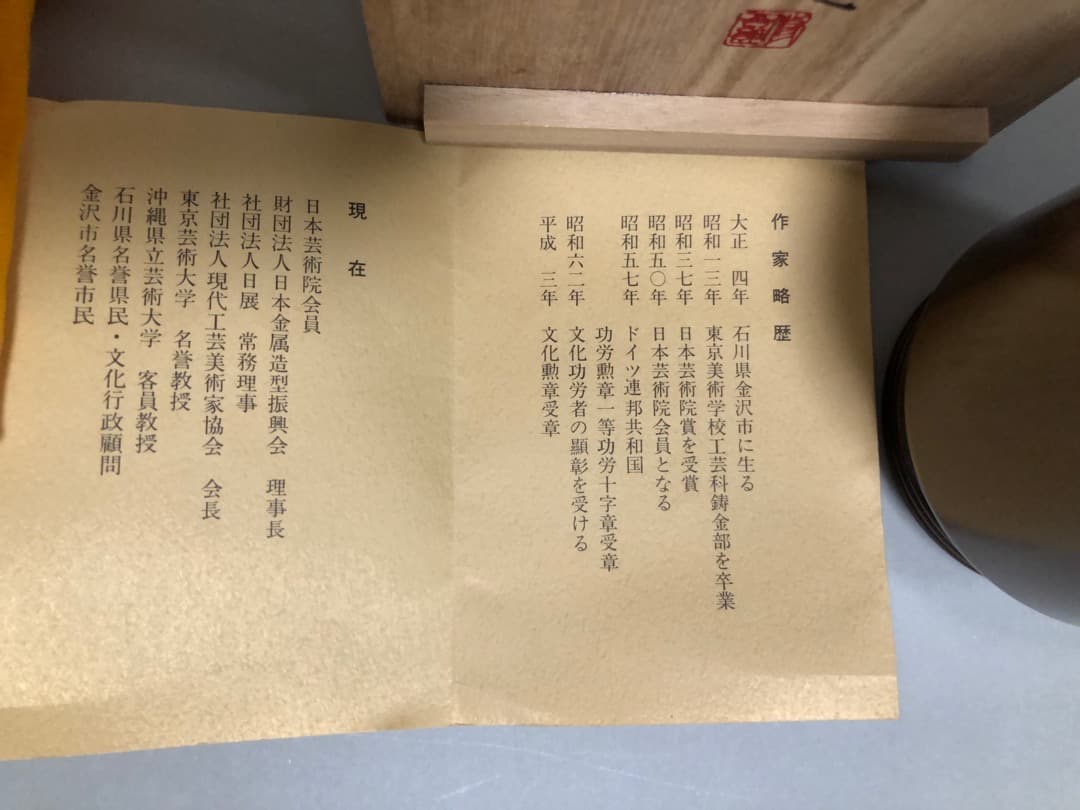 作家略歴
大正 四年 石川県金沢市に生る
昭和一三年 東京美術学校工芸科鋳金部を卒業
昭和三七年 日本芸術院賞を受賞
昭和五〇年 日本芸術院会員となる
昭和五七年 ドイツ連邦共和国
功労勲章一等功労十字章受章
昭和六二年 文化功労者の顕彰を受ける
平成 三年 文化勲章受章
現在
日本芸術院会員
財団法人日本金属造型振興会 理事長
社団法人日展 常務理事
社団法人現代工芸美術家協会 会長
東京芸術大学 名誉教授
沖縄県立芸術大学 客員教授
石川県名誉県民・文化行政顧問
金沢市名誉市民